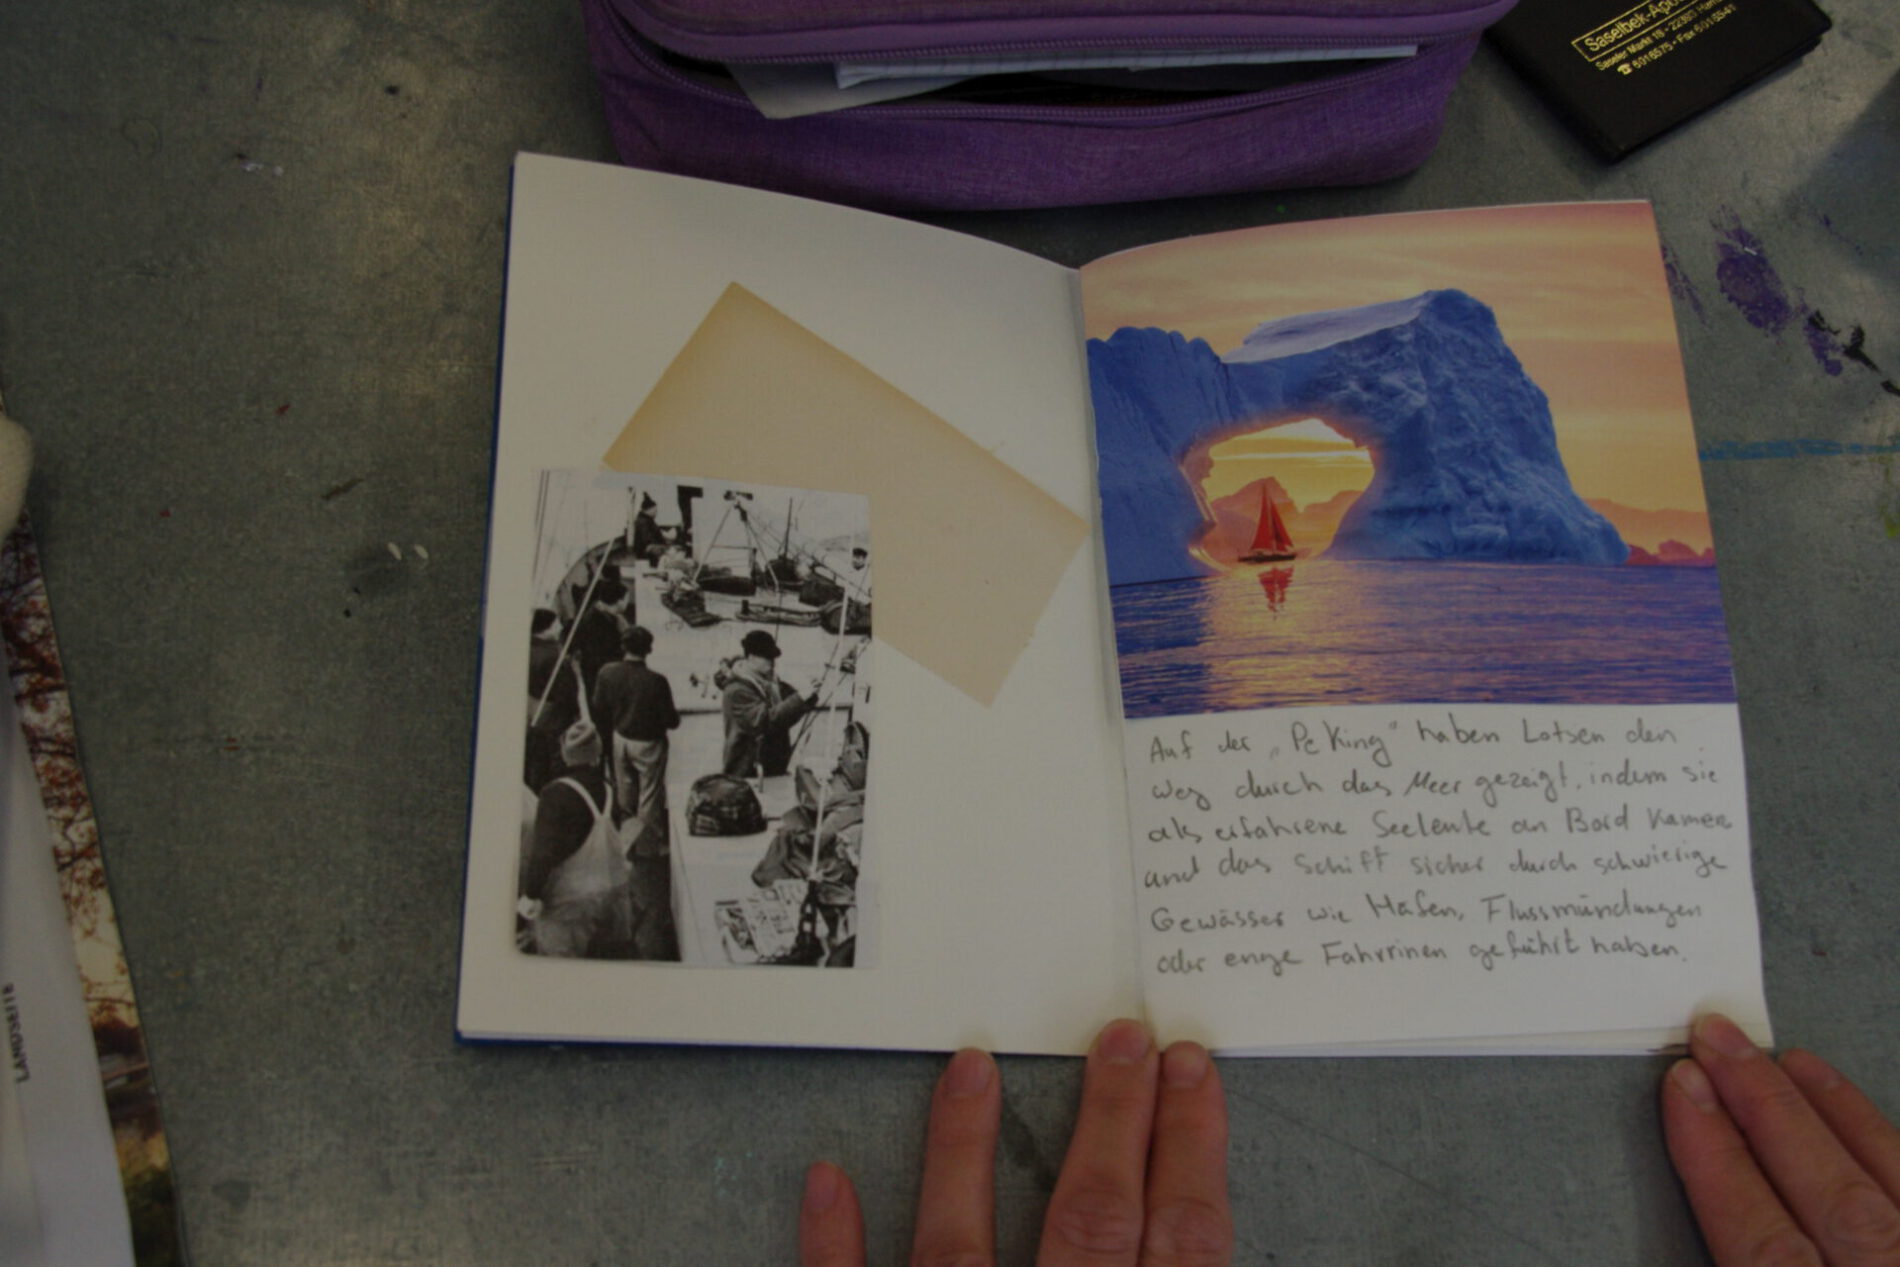 Saselbek-Apo
Saseler Markt 18 - 22393 Ham
☎ 6016575 • Fax 6016541
Auf der „Peking“ haben Lotsen den
weg durch das Meer gezeigt, indem sie
als erfahrene Seeleute an Bord kamen
und das Schiff sicher durch schwierige
Gewässer wie Häfen, Flussmündungen
oder enge Fahrrinen geführt haben.
LANDSEITE